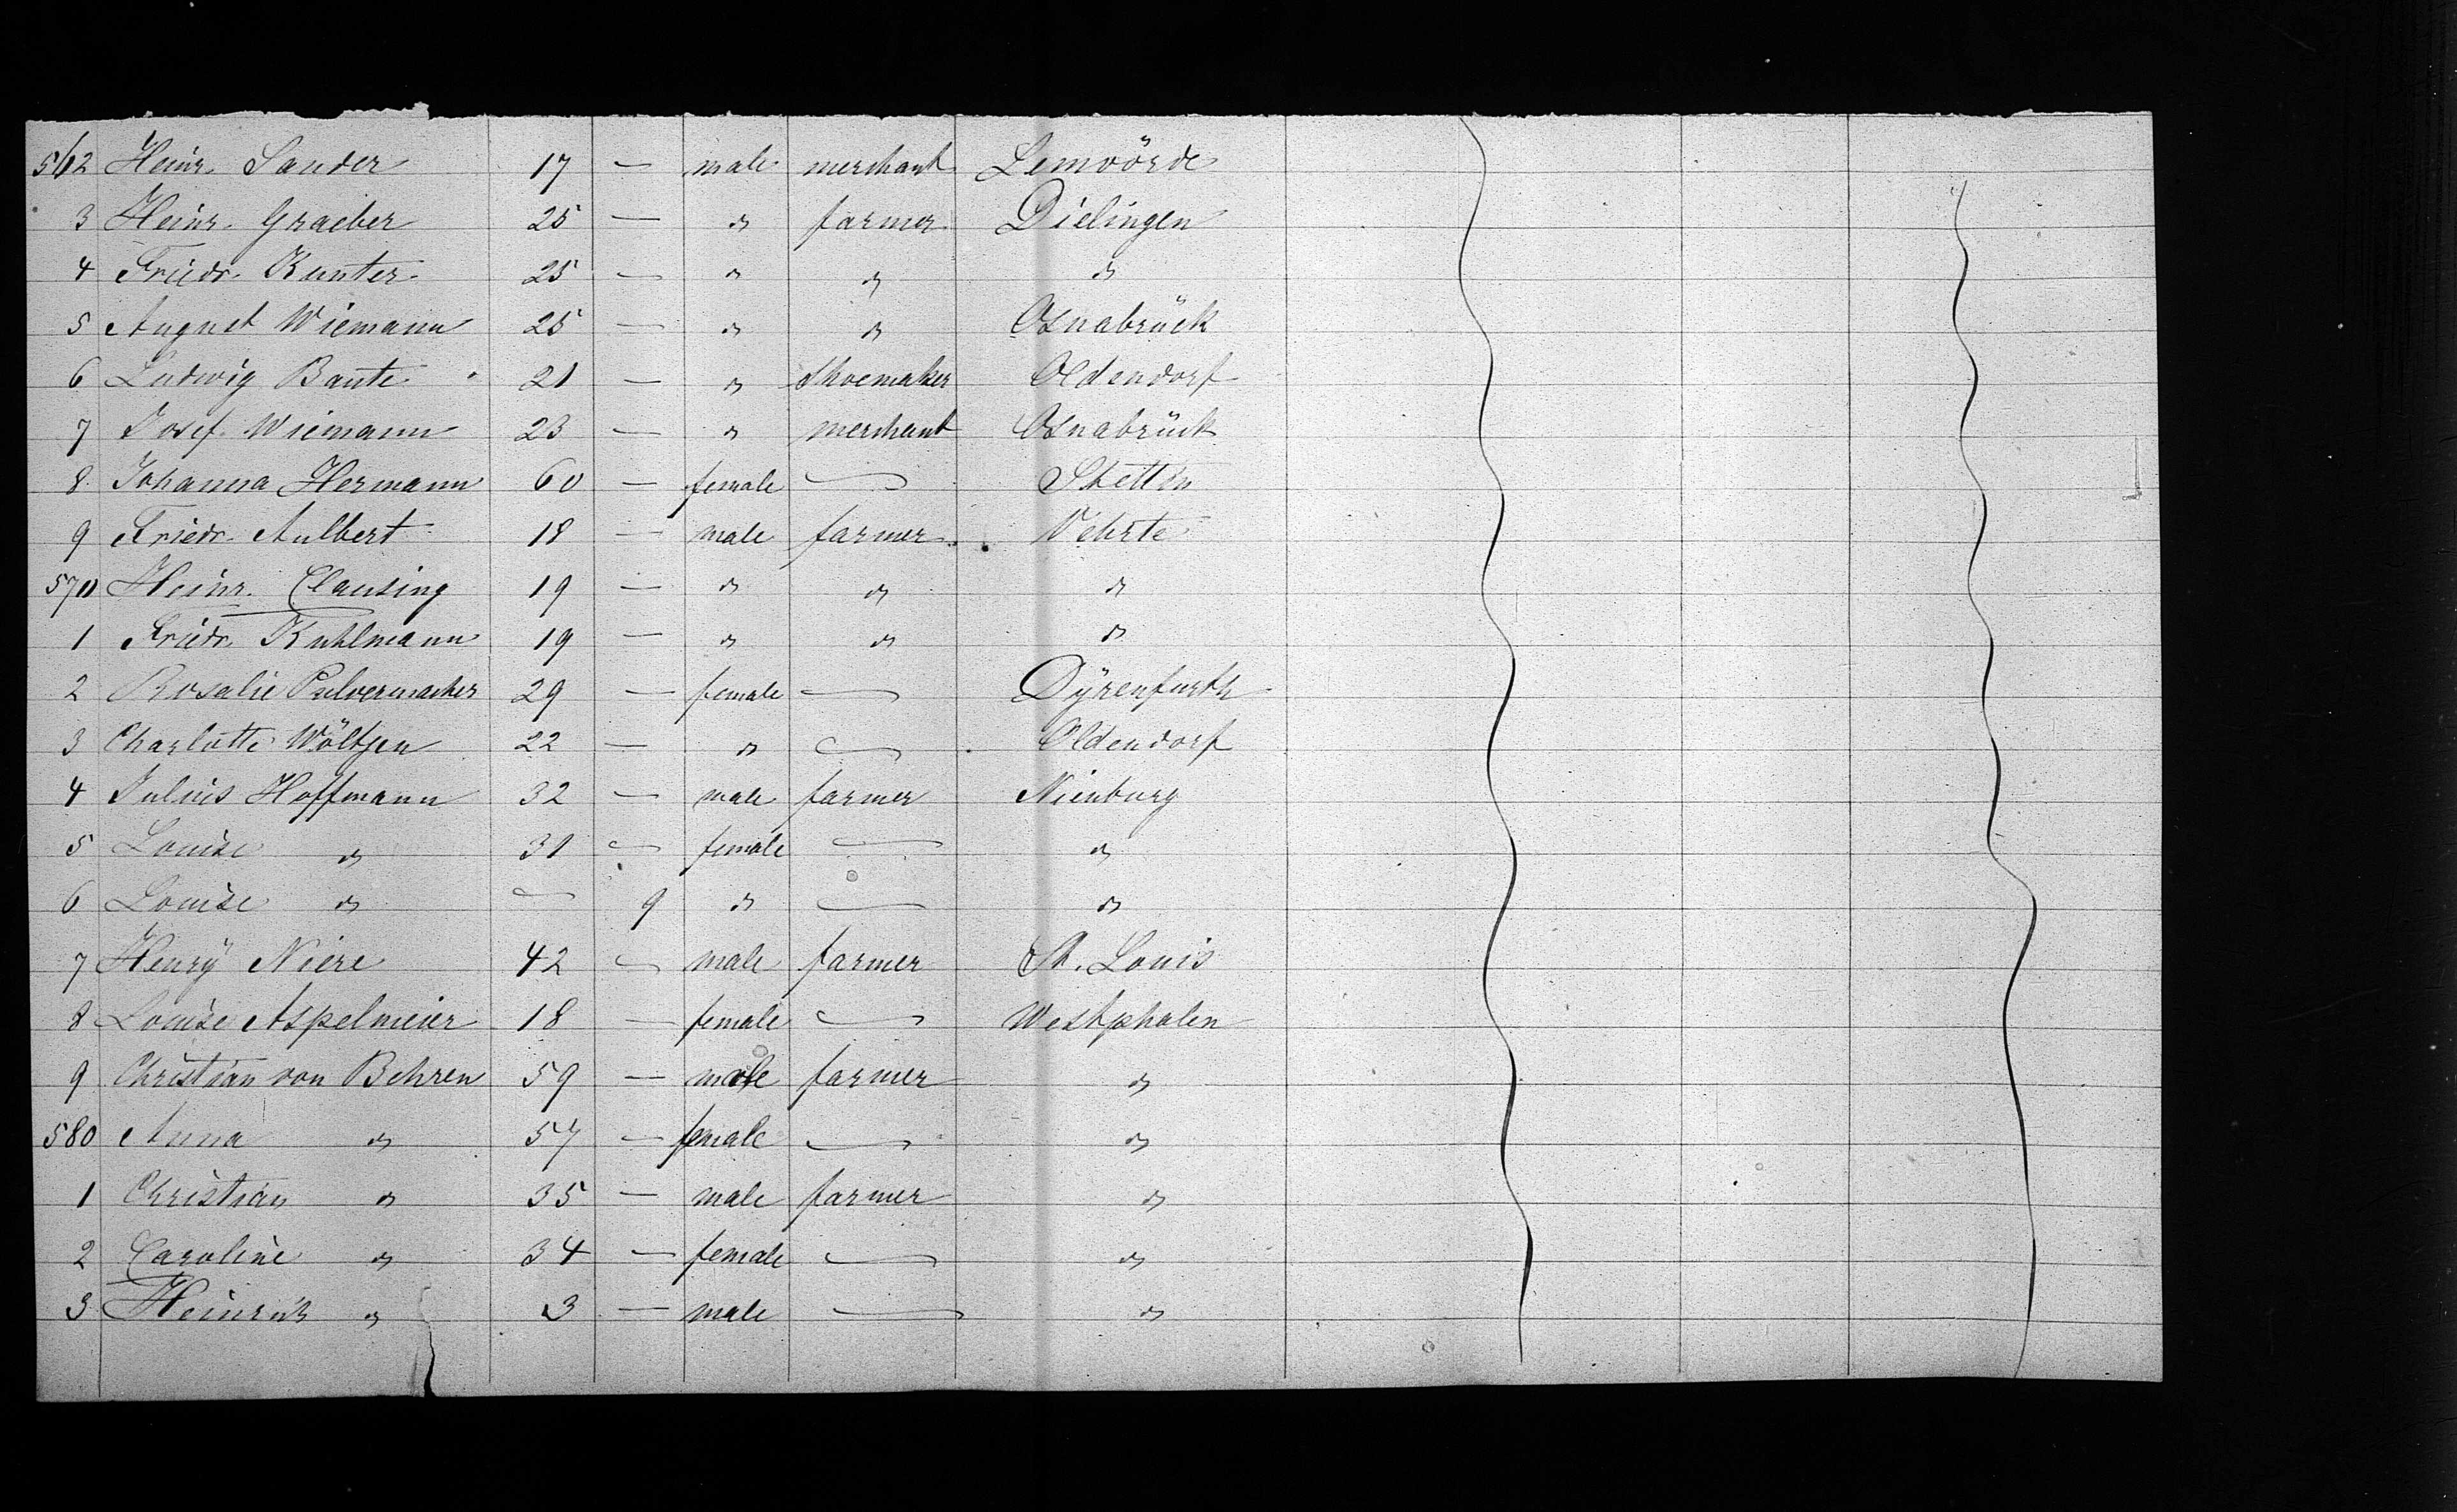 562 Heinr. Sander 17 — male merchant Lemvörde
3 Heinr. Graeber 25 — " farmer Dielingen
4 Friedr. Kunter 25 — " " "
5 August Wiemann 25 — " " Osnabrück
6 Ludwig Bante 21 — " Shoemaker Oldendorf
7 Josef Wiemann 23 — " merchant Osnabrück
8 Johanna Hermann 60 — female — Stettin
9 Friedr. Aulbert 18 — male farmer Vehrte
570 Heinr. Clausing 19 — " " "
1 Friedr. Kuhlmann 19 — " " "
2 Rosalie Pulvermacher 29 — female — Dÿrenfurth
3 Charlotte Wöltjen 22 — " — Oldendorf
4 Julius Hoffmann 32 — male farmer Nienburg
5 Louise " 31 — female — "
6 Louise " — 9 " — "
7 Henrÿ Niere 42 — male farmer St. Louis
8 Louise Aspelmeier 18 — female — Westphalen
9 Christian von Behren 59 — male farmer "
580 Anna " 57 — female — "
1 Christian " 35 — male farmer "
2 Caroline " 34 — female — "
3 Heinrich " 3 — male — "